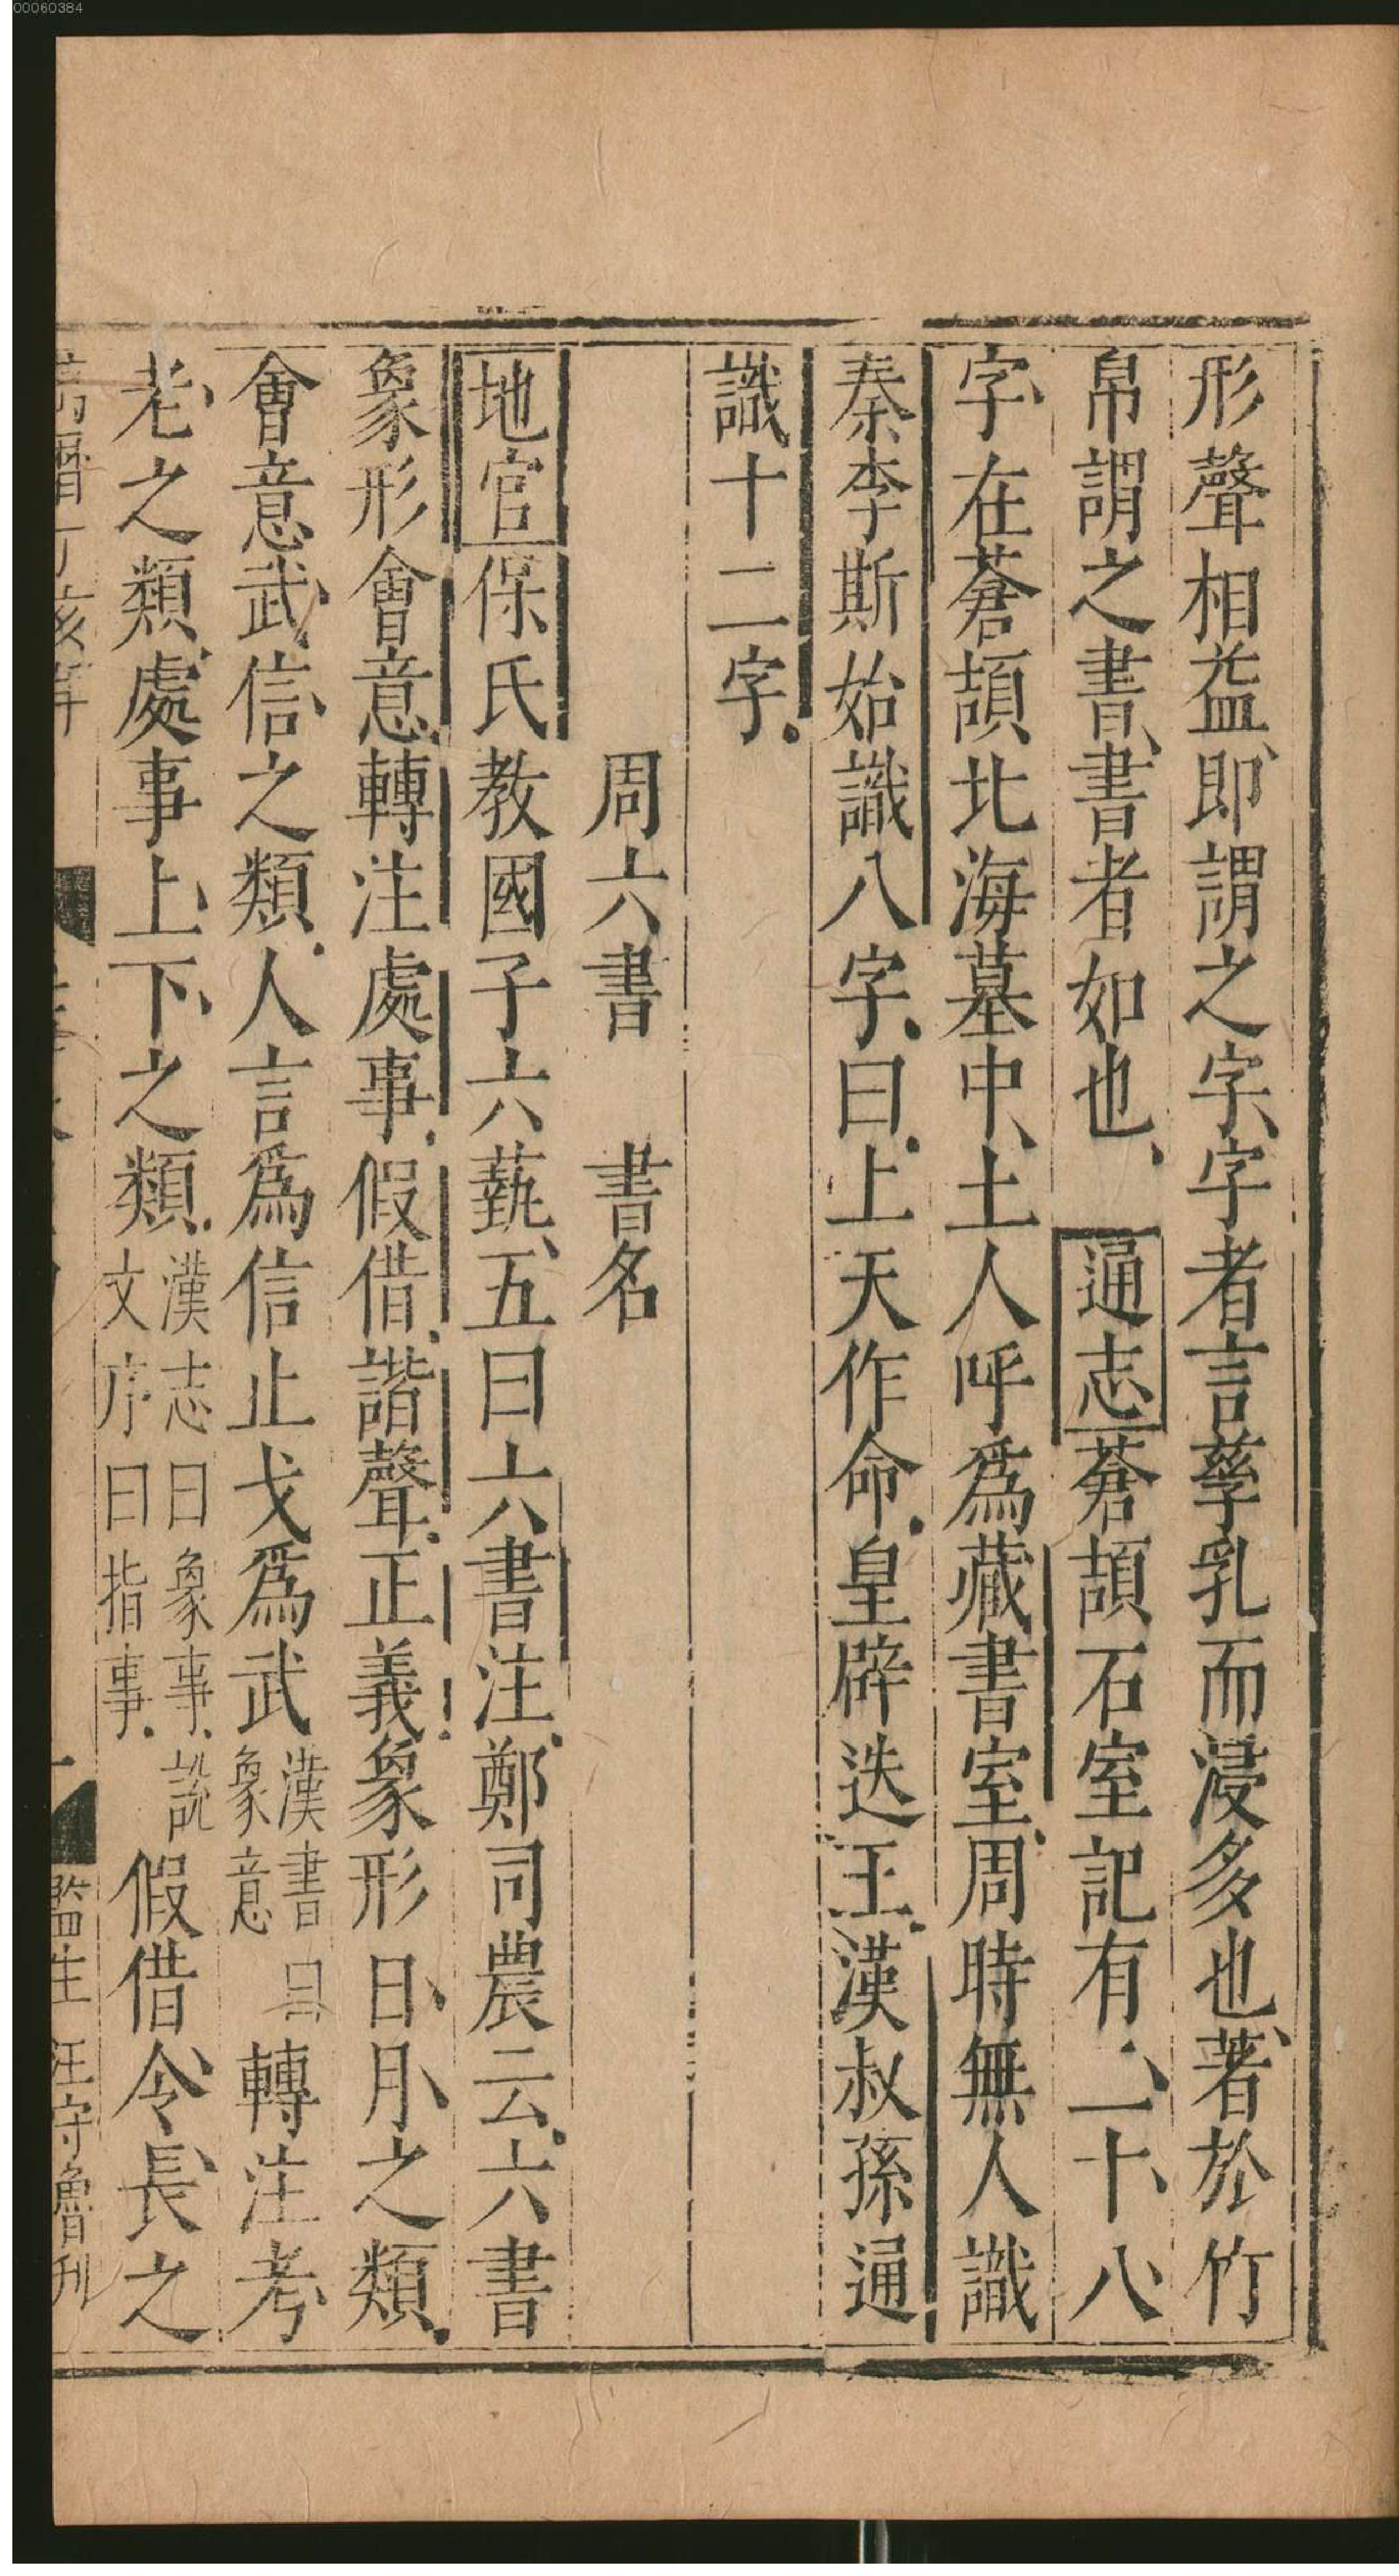 00060384
形聲相益即謂之字字者言孳乳而浸多也著於竹
帛謂之書書者如也 通志蒼頡石室記有二十八
字在蒼頡北海墓中土人呼爲藏書室周時無人識
秦李斯始識八字曰上天作命皇辟迭王漢叔孫通
識十二字
周六書 書名
地官保氏教國子六藝五曰六書注鄭司農云六書
象形會意轉注處事假借諧聲正義象形日月之類
會意武信之類人言爲信止戈爲武漢書曰象意轉注考
老之類處事上下之類漢志曰象事說文序曰指事假借令長之
監生汪守魯刊